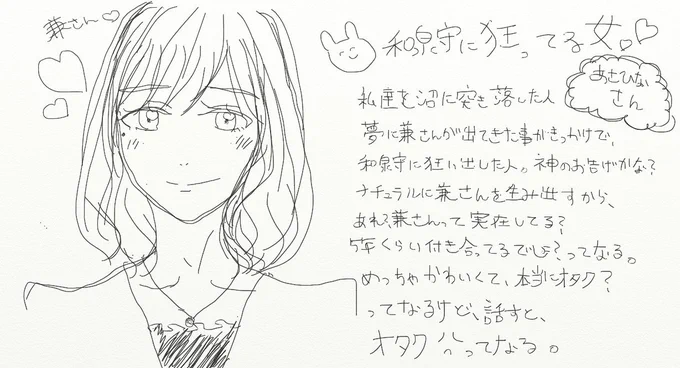 兼さん♡
和泉守に狂ってる女。♡
あさひな
さん
私達を沼に突き落した人
夢に兼さんが出てきた事がきっかけで、
和泉守に狂い出した人。神のお告げかな?
ナチュラルに兼さんを生み出すから、
あれ?兼さんって実在してる?
5年くらい付き合ってるでしょ?ってなる。
めっちゃかわいくて、本当にオタク?
ってなるけど、話すと、
オタク〜ってなる。